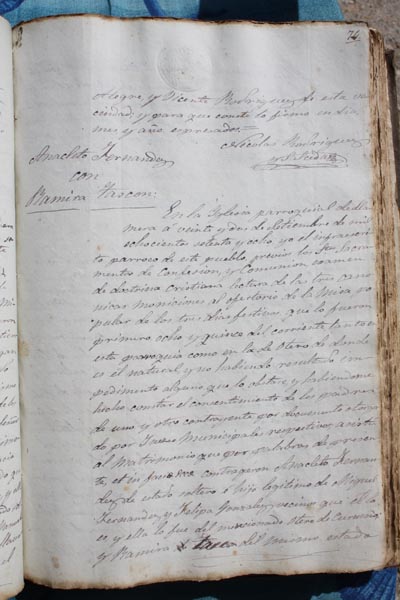 74
Alegre y Vicente Rodriguez de esta ve
cindad; y para que conste lo firmo en dia,
mes y año expresados.=
Nicolas Rodriguez
Anacleto Fernandez
con
Ramira Tascon:
En la Iglesia parroquial de
mera á veinte y dos de Setiembre de mil
ochociento setenta y ocho yo el infraescrito
parroco de este pueblo, previos los Stos Sacra
mentos de Confesion, y Comunion, examen
de doctrina Cristiana lectura de las tres cano
nicas moniciones al ofertorio de la Misa po
pular de los tres dias festivos que lo fueron
primero ocho y quince del corriente tanto en
esta parroquia como en la de Otero de donde
es el natural y no habiendo resultado im
pedimento alguno que lo obste y habiendome
hecho constar el consentimiento de los padres
de uno y otro contrayente por documento otorga
do por Jueces Municipales respectivos asisti
al Matrimonio que por palabras de presen
te, contrageron Anacleto Fernan
dez de estado soltero é hijo legitimo de Miguel
Fernandez y Felipa Gonzalez vecino que él lo
es y ella lo fué del mencionado Otero de Curueño
y Ramira Tascon del mismo estado